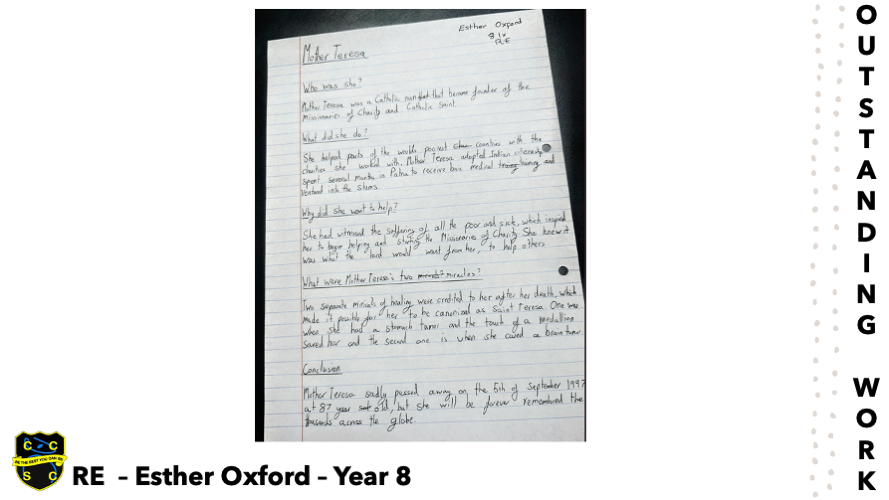 Esther Oxford
8
RE
Mother Teresa
Who was she?
Mother Teresa was a Catholic nun that became founder of the
Missionaries of Charity and Catholic Saint.
What did she do?
She helped parts of the worlds poorest countries with the
charities she worked with. Mother Teresa adopted Indian citizenship
spent several months in Patna to receive basic medical training and
ventured into the slums.
Why did she want to help?
She had witnessed the suffering of all the poor and sick, which inspired
her to begin helping and starting the Missionaries of Charity. She knew it
was what the lord would want from her, to help others
What were Mother Teresa's two miracles?
Two separate miricals of healing were credited to her after her death, which
made it possible for her to be canonized as Saint Teresa. One was
when she had a stomach tumor and the touch of a medallion
saved her and the second one is when she cured a brain tumor
Conclusion
Mother Teresa sadly passed away on the 5th of September 1997
at 87 year old, but she will be forever remembered
thousands across the globe.
O
U
T
S
T
A
N
D
I
N
G
W
O
R
K
C C
BE THE BEST YOU CAN BE
S C
RE – Esther Oxford – Year 8